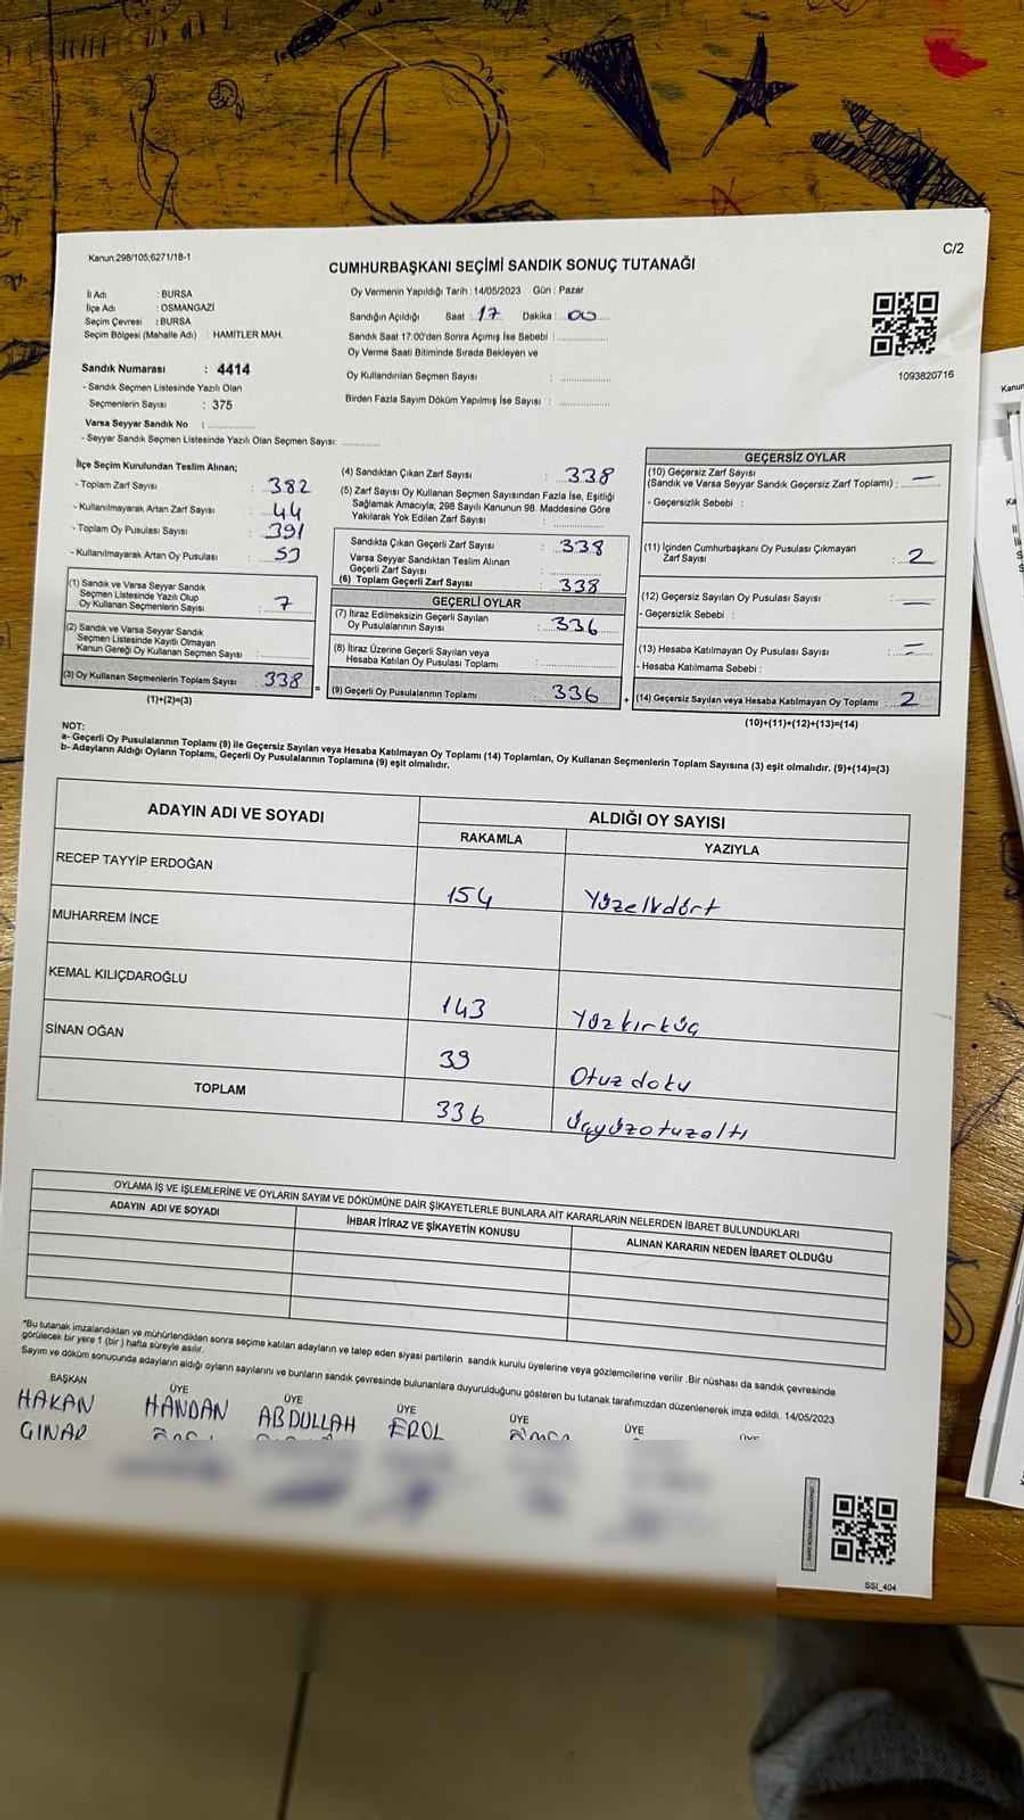 Kanun:298/105;6271/18-1
C/2
CUMHURBAŞKANI SEÇİMİ SANDIK SONUÇ TUTANAĞI
İl Adı : BURSA
İlçe Adı : OSMANGAZİ
Seçim Çevresi : BURSA
Seçim Bölgesi (Mahalle Adı) : HAMİTLER MAH.
Oy Vermenin Yapıldığı Tarih : 14/05/2023 Gün : Pazar
Sandığın Açıldığı Saat : 17 Dakika : 00
Sandık Saat 17:00'den Sonra Açımış İse Sebebi :
Oy Verme Saati Bitiminde Sırada Bekleyen ve
Oy Kullandırılan Seçmen Sayısı :
Birden Fazla Sayım Döküm Yapılmış İse Sayısı :
1093820716
Sandık Numarası : 4414
- Sandık Seçmen Listesinde Yazılı Olan
Seçmenlerin Sayısı : 375
Varsa Seyyar Sandık No :
- Seyyar Sandık Seçmen Listesinde Yazılı Olan Seçmen Sayısı:
İlçe Seçim Kurulundan Teslim Alınan;
- Toplam Zarf Sayısı : 382
- Kullanılmayarak Artan Zarf Sayısı : 44
- Toplam Oy Pusulası Sayısı : 391
- Kullanılmayarak Artan Oy Pusulası : 53
(1) Sandık ve Varsa Seyyar Sandık
Seçmen Listesinde Yazılı Olup
Oy Kullanan Seçmenlerin Sayısı : 7
(2) Sandık ve Varsa Seyyar Sandık
Seçmen Listesinde Kayıtlı Olmayan
Kanun Gereği Oy Kullanan Seçmen Sayısı :
(3) Oy Kullanan Seçmenlerin Toplam Sayısı 338 =
(1)+(2)=(3)
(4) Sandıktan Çıkan Zarf Sayısı : 338
(5) Zarf Sayısı Oy Kullanan Seçmen Sayısından Fazla İse, Eşitliği
Sağlamak Amacıyla; 298 Sayılı Kanunun 98. Maddesine Göre
Yakılarak Yok Edilen Zarf Sayısı :
Sandıkta Çıkan Geçerli Zarf Sayısı : 338
Varsa Seyyar Sandıktan Teslim Alınan
Geçerli Zarf Sayısı :
(6) Toplam Geçerli Zarf Sayısı : 338
GEÇERLİ OYLAR
(7) İtiraz Edilmeksizin Geçerli Sayılan
Oy Pusulalarının Sayısı : 336
(8) İtiraz Üzerine Geçerli Sayılan veya
Hesaba Katılan Oy Pusulası Toplamı :
(9) Geçerli Oy Pusulalarının Toplamı : 336 +
GEÇERSİZ OYLAR
(10) Geçersiz Zarf Sayısı
(Sandık ve Varsa Seyyar Sandık Geçersiz Zarf Toplamı) : —
- Geçersizlik Sebebi :
(11) İçinden Cumhurbaşkanı Oy Pusulası Çıkmayan
Zarf Sayısı : 2
(12) Geçersiz Sayılan Oy Pusulası Sayısı : —
- Geçersizlik Sebebi :
(13) Hesaba Katılmayan Oy Pusulası Sayısı : —
- Hesaba Katılmama Sebebi :
(14) Geçersiz Sayılan veya Hesaba Katılmayan Oy Toplamı : 2
(10)+(11)+(12)+(13)=(14)
NOT:
a- Geçerli Oy Pusulalarının Toplamı (9) ile Geçersiz Sayılan veya Hesaba Katılmayan Oy Toplamı (14) Toplamları, Oy Kullanan Seçmenlerin Toplam Sayısına (3) eşit olmalıdır. (9)+(14)=(3)
b- Adayların Aldığı Oyların Toplamı, Geçerli Oy Pusulalarının Toplamına (9) eşit olmalıdır.
ADAYIN ADI VE SOYADI ALDIĞI OY SAYISI
RAKAMLA YAZIYLA
RECEP TAYYİP ERDOĞAN 154 Yüzellidört
MUHARREM İNCE
KEMAL KILIÇDAROĞLU 143 Yüzkırküç
SİNAN OĞAN 39 Otuzdoku
TOPLAM 336 üçyüzotuzaltı
OYLAMA İŞ VE İŞLEMLERİNE VE OYLARIN SAYIM VE DÖKÜMÜNE DAİR ŞİKAYETLERLE BUNLARA AİT KARARLARIN NELERDEN İBARET BULUNDUKLARI
ADAYIN ADI VE SOYADI İHBAR İTİRAZ VE ŞİKAYETİN KONUSU ALINAN KARARIN NEDEN İBARET OLDUĞU
*Bu tutanak imzalandıktan ve mühürlendikten sonra seçime katılan adayların ve talep eden siyasi partilerin sandık kurulu üyelerine veya gözlemcilerine verilir .Bir nüshası da sandık çevresinde
görülecek bir yere 1 (bir ) hafta süreyle asılır.
Sayım ve döküm sonucunda adayların aldığı oyların sayılarını ve bunların sandık çevresinde bulunanlara duyurulduğunu gösteren bu tutanak tarafımızdan düzenlenerek imza edildi. 14/05/2023
BAŞKAN ÜYE ÜYE ÜYE ÜYE ÜYE ÜYE
HAKAN HANDAN ABDULLAH EROL
ÇINAR
SSI_404
Kanun